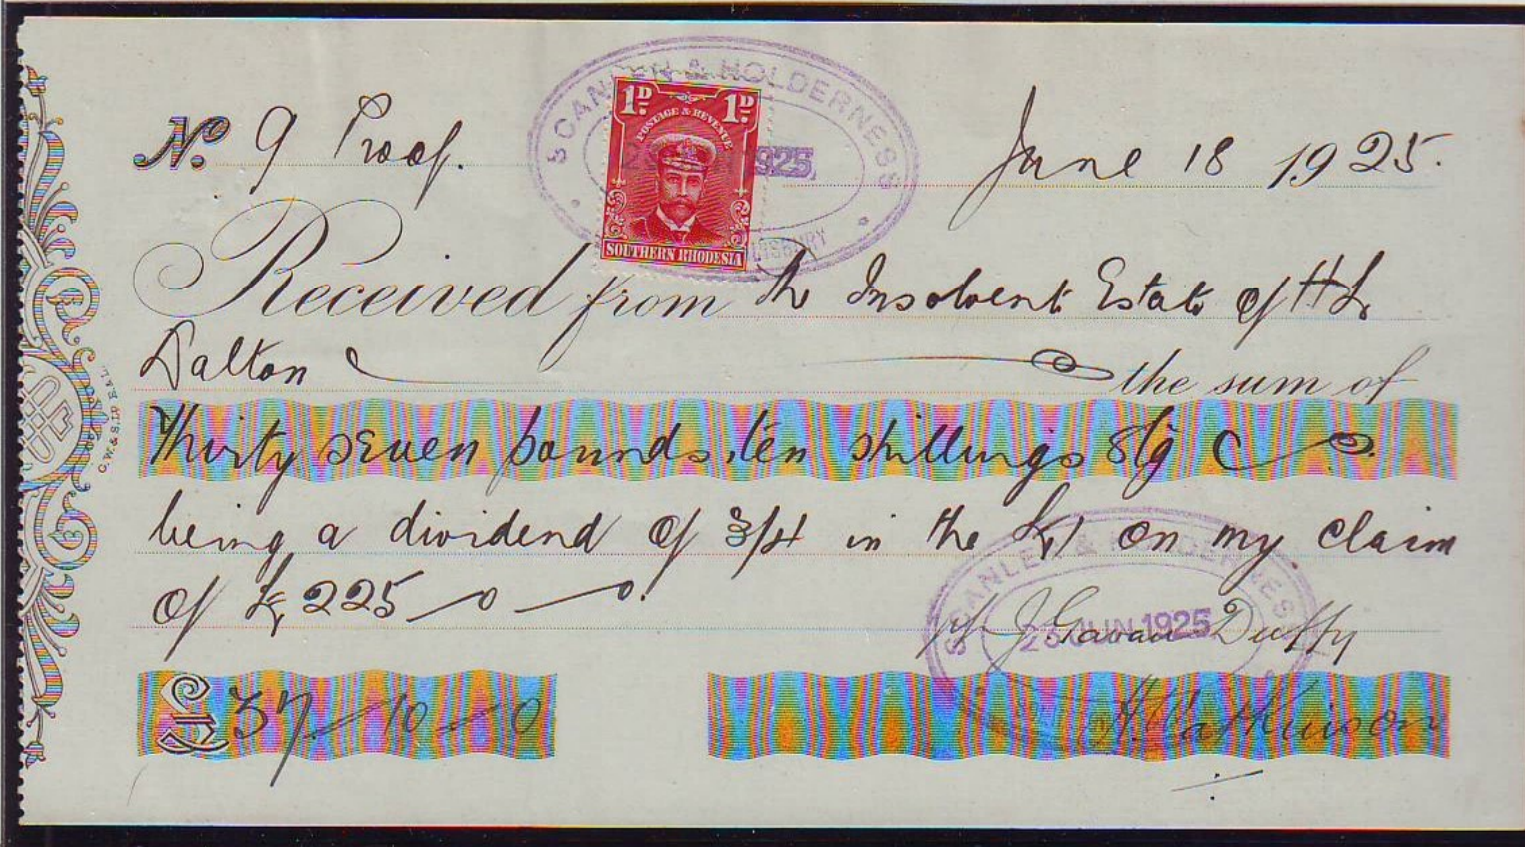 No. 9 Proof.
SCANLEN & HOLDERNESS
1925
SALISBURY
1D 1D
POSTAGE & REVENUE
SOUTHERN RHODESIA
June 18 1925.
Received from the Insolvent Estate of H L
Dalton the sum of
Thirty seven pounds, ten shillings Stg
being a dividend of 3/4 in the £1 on my claim
of £225-0-0.
SCANLEN & HOLDERNESS
JUN 1925
J. Gavan Duffy
£ 37-10-0
C. W. & S. LD E. & L.